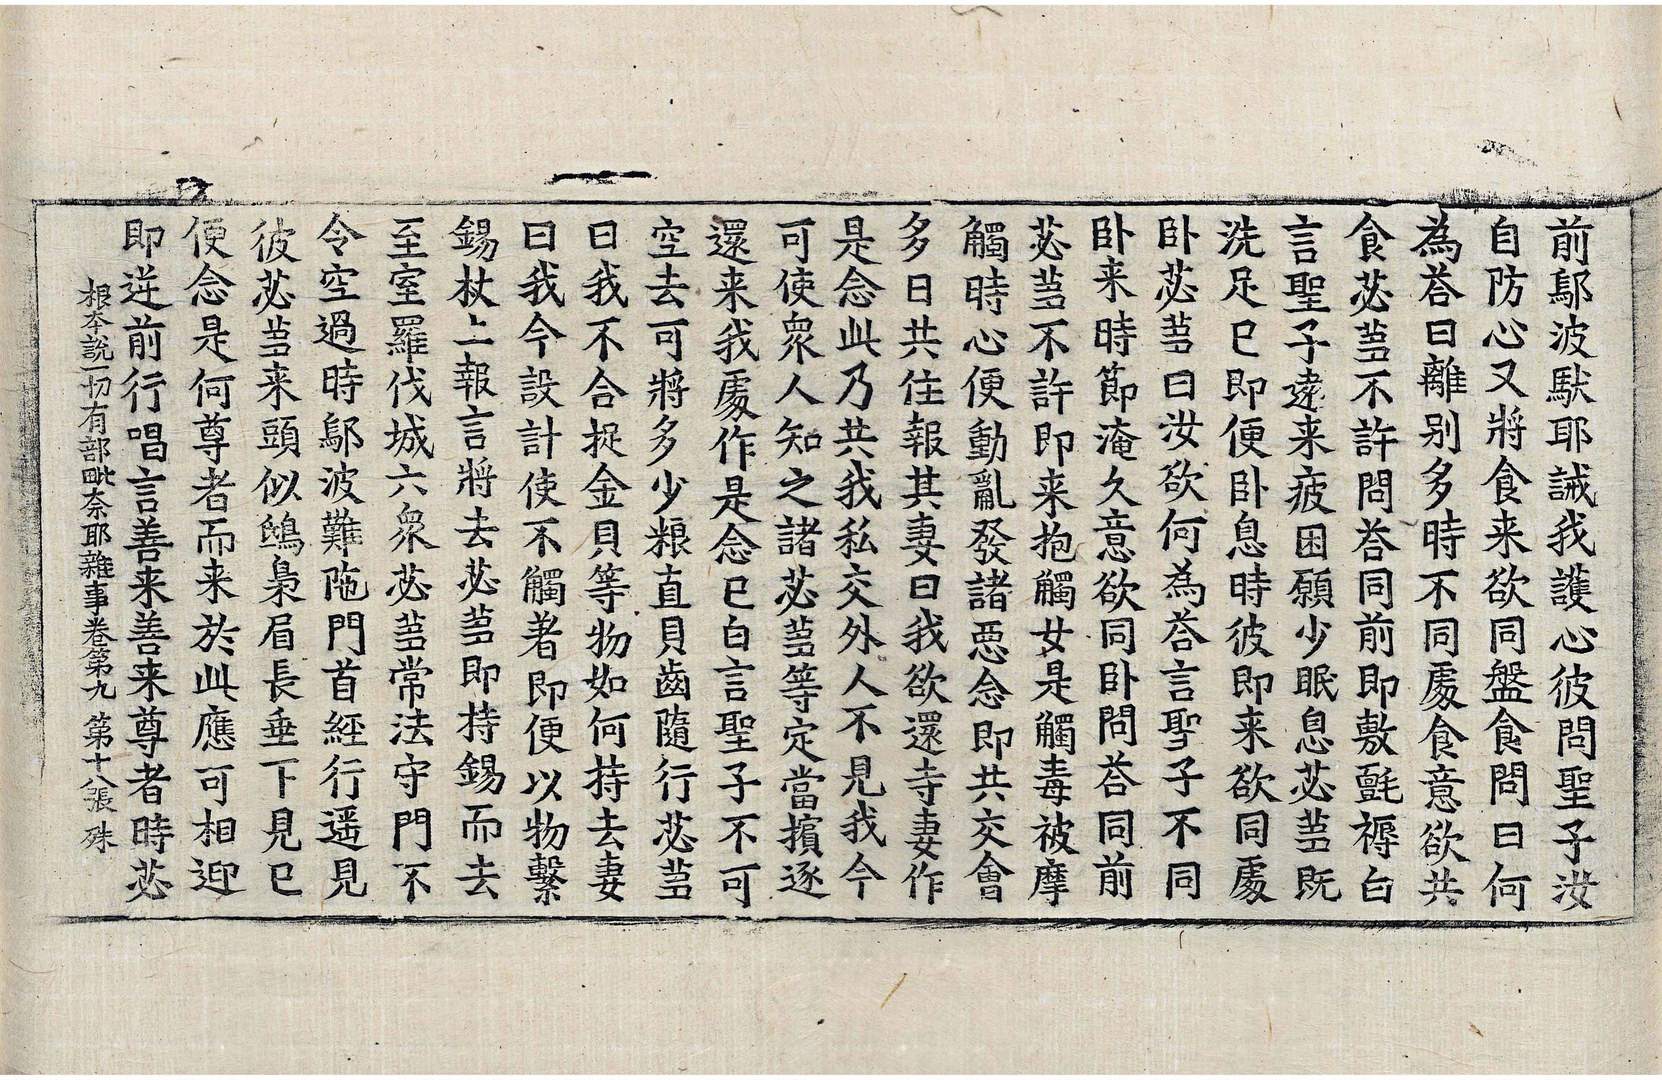 前鄔波馱耶誡我護心彼問聖子汝
自防心又將食来欲同盤食問曰何
為荅曰離别多時不同處食意欲共
食苾蒭不許問荅同前即敷氈褥白
言聖子遠来疲困願少眠息苾蒭既
洗足已即便卧息時彼即来欲同處
卧苾蒭曰汝欲何為荅言聖子不同
卧来時節淹久意欲同卧問荅同前
苾蒭不許即来抱觸女是觸毒被摩
觸時心便動亂發諸惡念即共交會
多日共住報其妻曰我欲還寺妻作
是念此乃共我私交外人不見我今
可使衆人知之諸苾蒭等定當擯逐
還来我處作是念已白言聖子不可
空去可將多少粮直貝齒隨行苾蒭
曰我不合捉金貝等物如何持去妻
曰我今設計使不觸著即便以物繫
錫杖上報言將去苾蒭即持錫而去
至室羅伐城六衆苾蒭常法守門不
令空過時鄔波難陁門首經行遥見
彼苾蒭来頭似鵄梟眉長垂下見已
便念是何尊者而来於此應可相迎
即逆前行唱言善来善来尊者時苾
根本說一切有部毗奈耶雜事卷第九　第十八張　殊